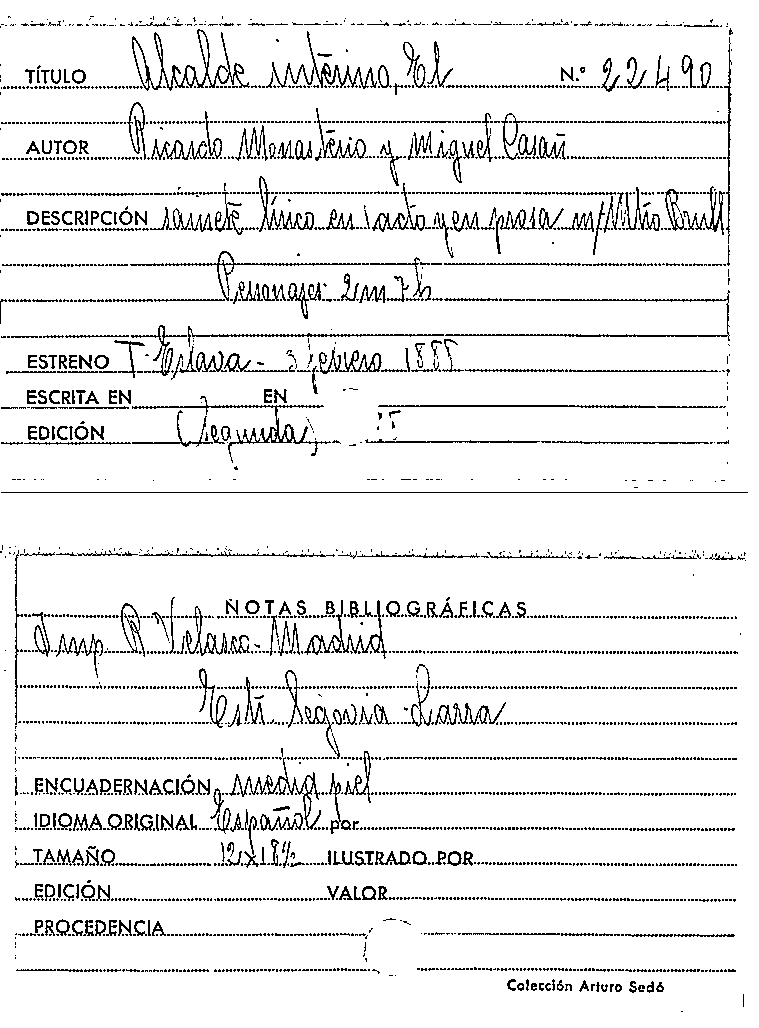 TÍTULO Alcalde interino, El N.º 22490
AUTOR Ricardo Monasterio y Miguel Casañ
DESCRIPCIÓN sainete lírico en 1 acto y en prosa m/ Mtro Brull
Personajes 2 m 7 h
ESTRENO T. Eslava - 3 febrero 1888
ESCRITA EN EN
EDICIÓN (Segunda)
NOTAS BIBLIOGRÁFICAS
Imp R Velasco - Madrid
Estr. Segovia - Larra
ENCUADERNACIÓN media piel
IDIOMA ORIGINAL Español por
TAMAÑO 12 x 18½ ILUSTRADO POR
EDICIÓN VALOR
PROCEDENCIA
Colección Arturo Sedó